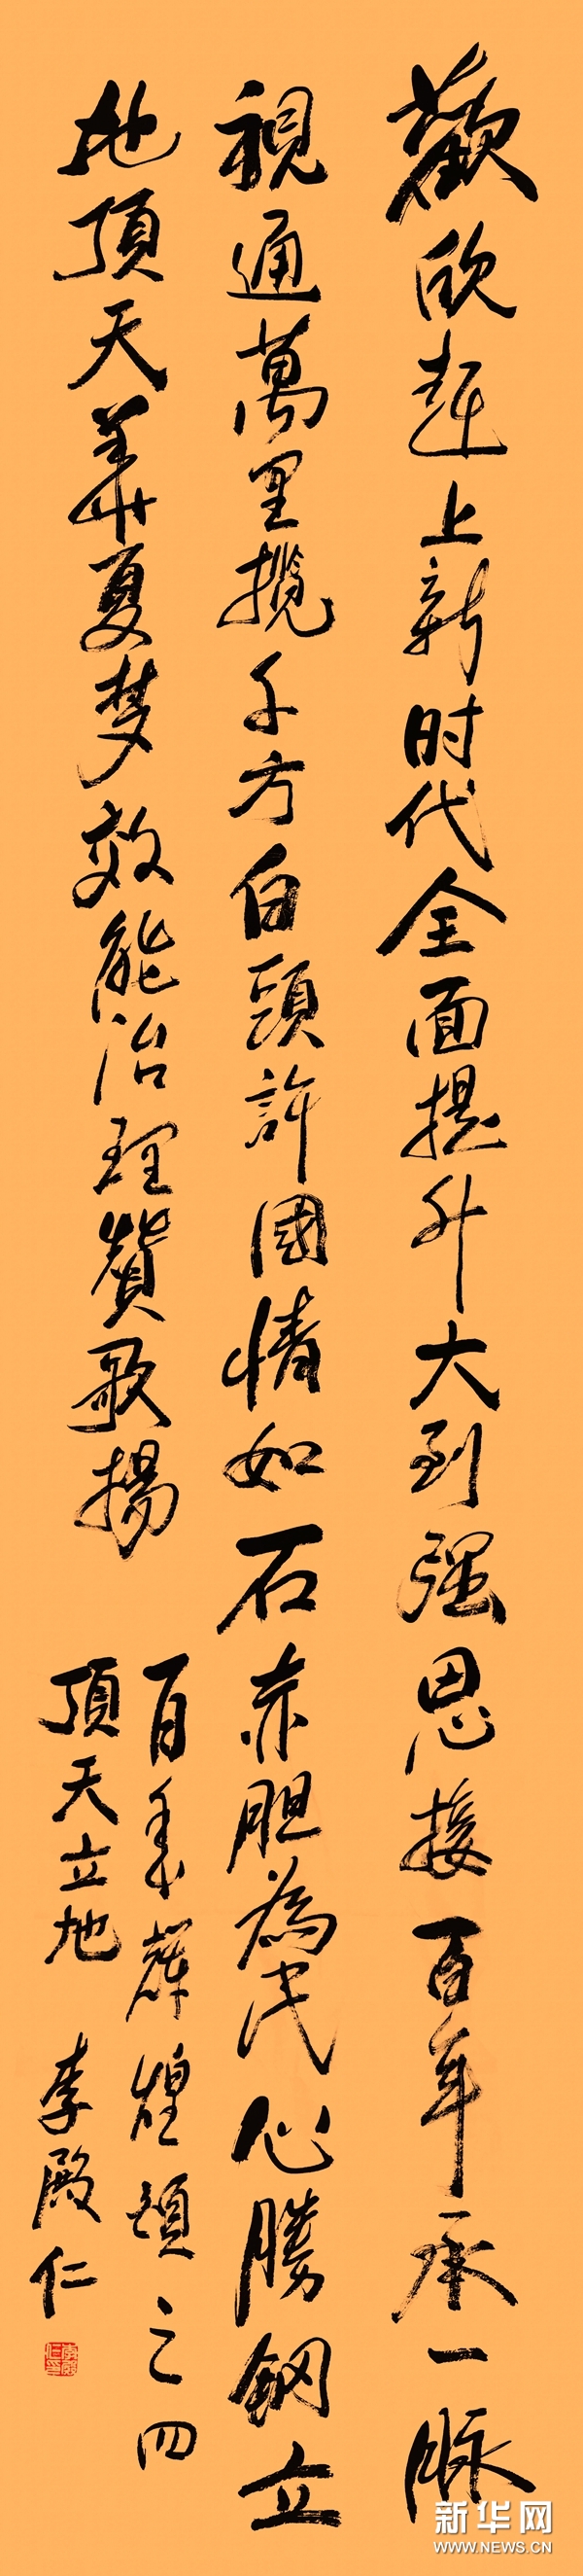 歡欣赶上新时代全面提升大到强思接百年承一脉
視通萬里攬千方白頭許國情如石赤胆為民心勝鋼立
地頂天華夏梦效能治理贊歌揚
百年輝煌頌之四
頂天立地 李殿仁
新华网
WWW.NEWS.CN